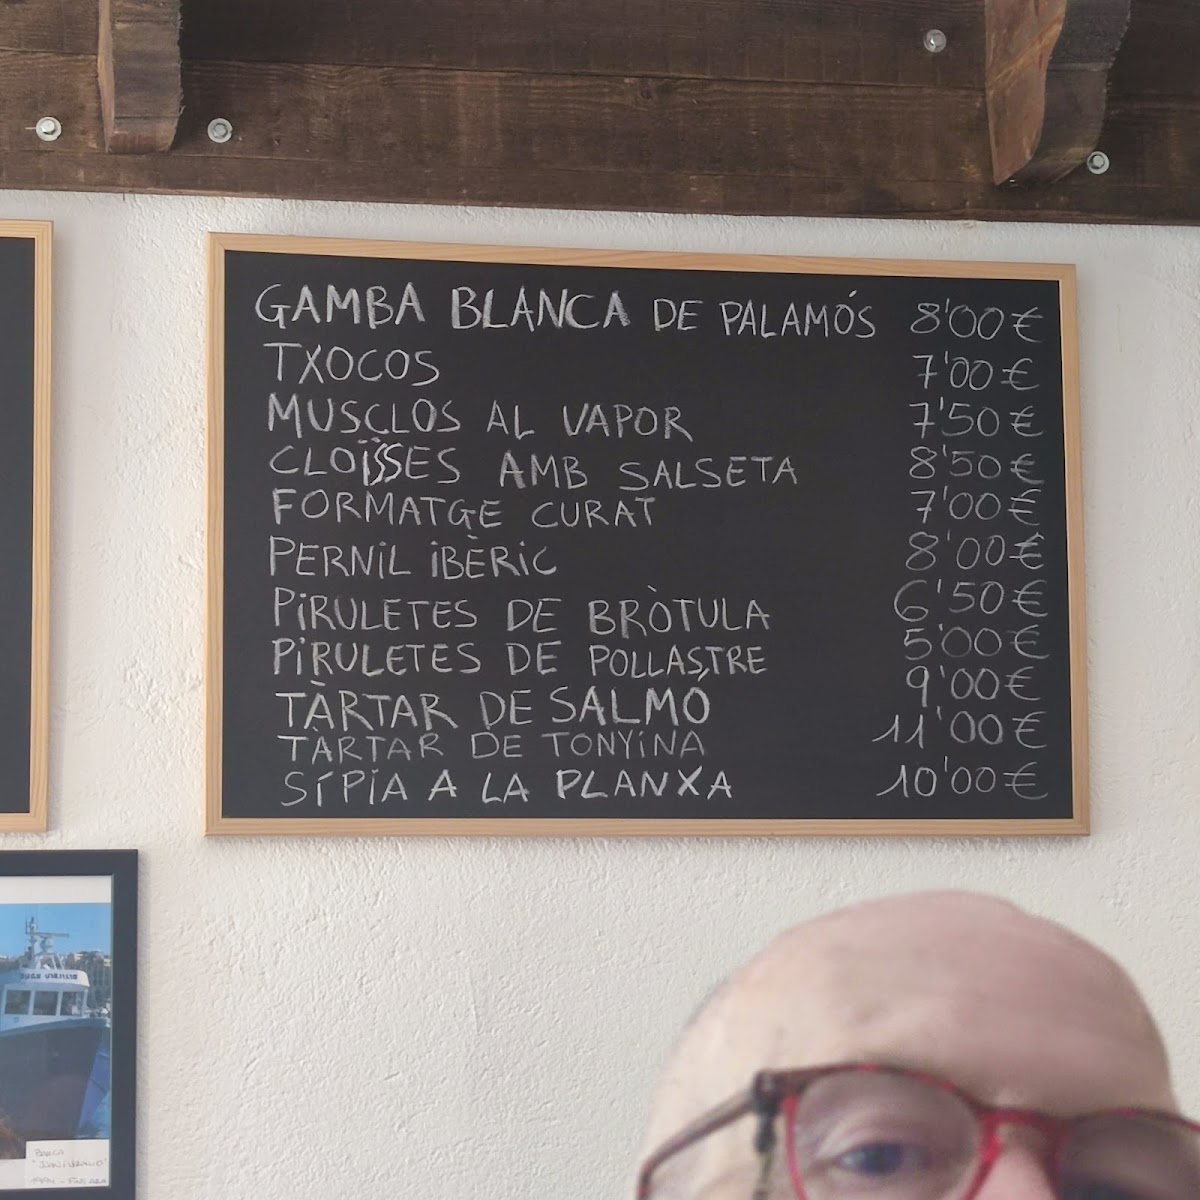 GAMBA BLANCA DE PALAMÓS 8'00€
TXOCOS 7'00€
MUSCLOS AL VAPOR 7'50€
CLOÏSSES AMB SALSETA 8'50€
FORMATGE CURAT 7'00€
PERNIL IBÈRIC 8'00€
PIRULETES DE BRÒTULA 6'50€
PIRULETES DE POLLASTRE 5'00€
TÀRTAR DE SALMÓ 9'00€
TÀRTAR DE TONYINA 11'00€
SÍPIA A LA PLANXA 10'00€
BARCA